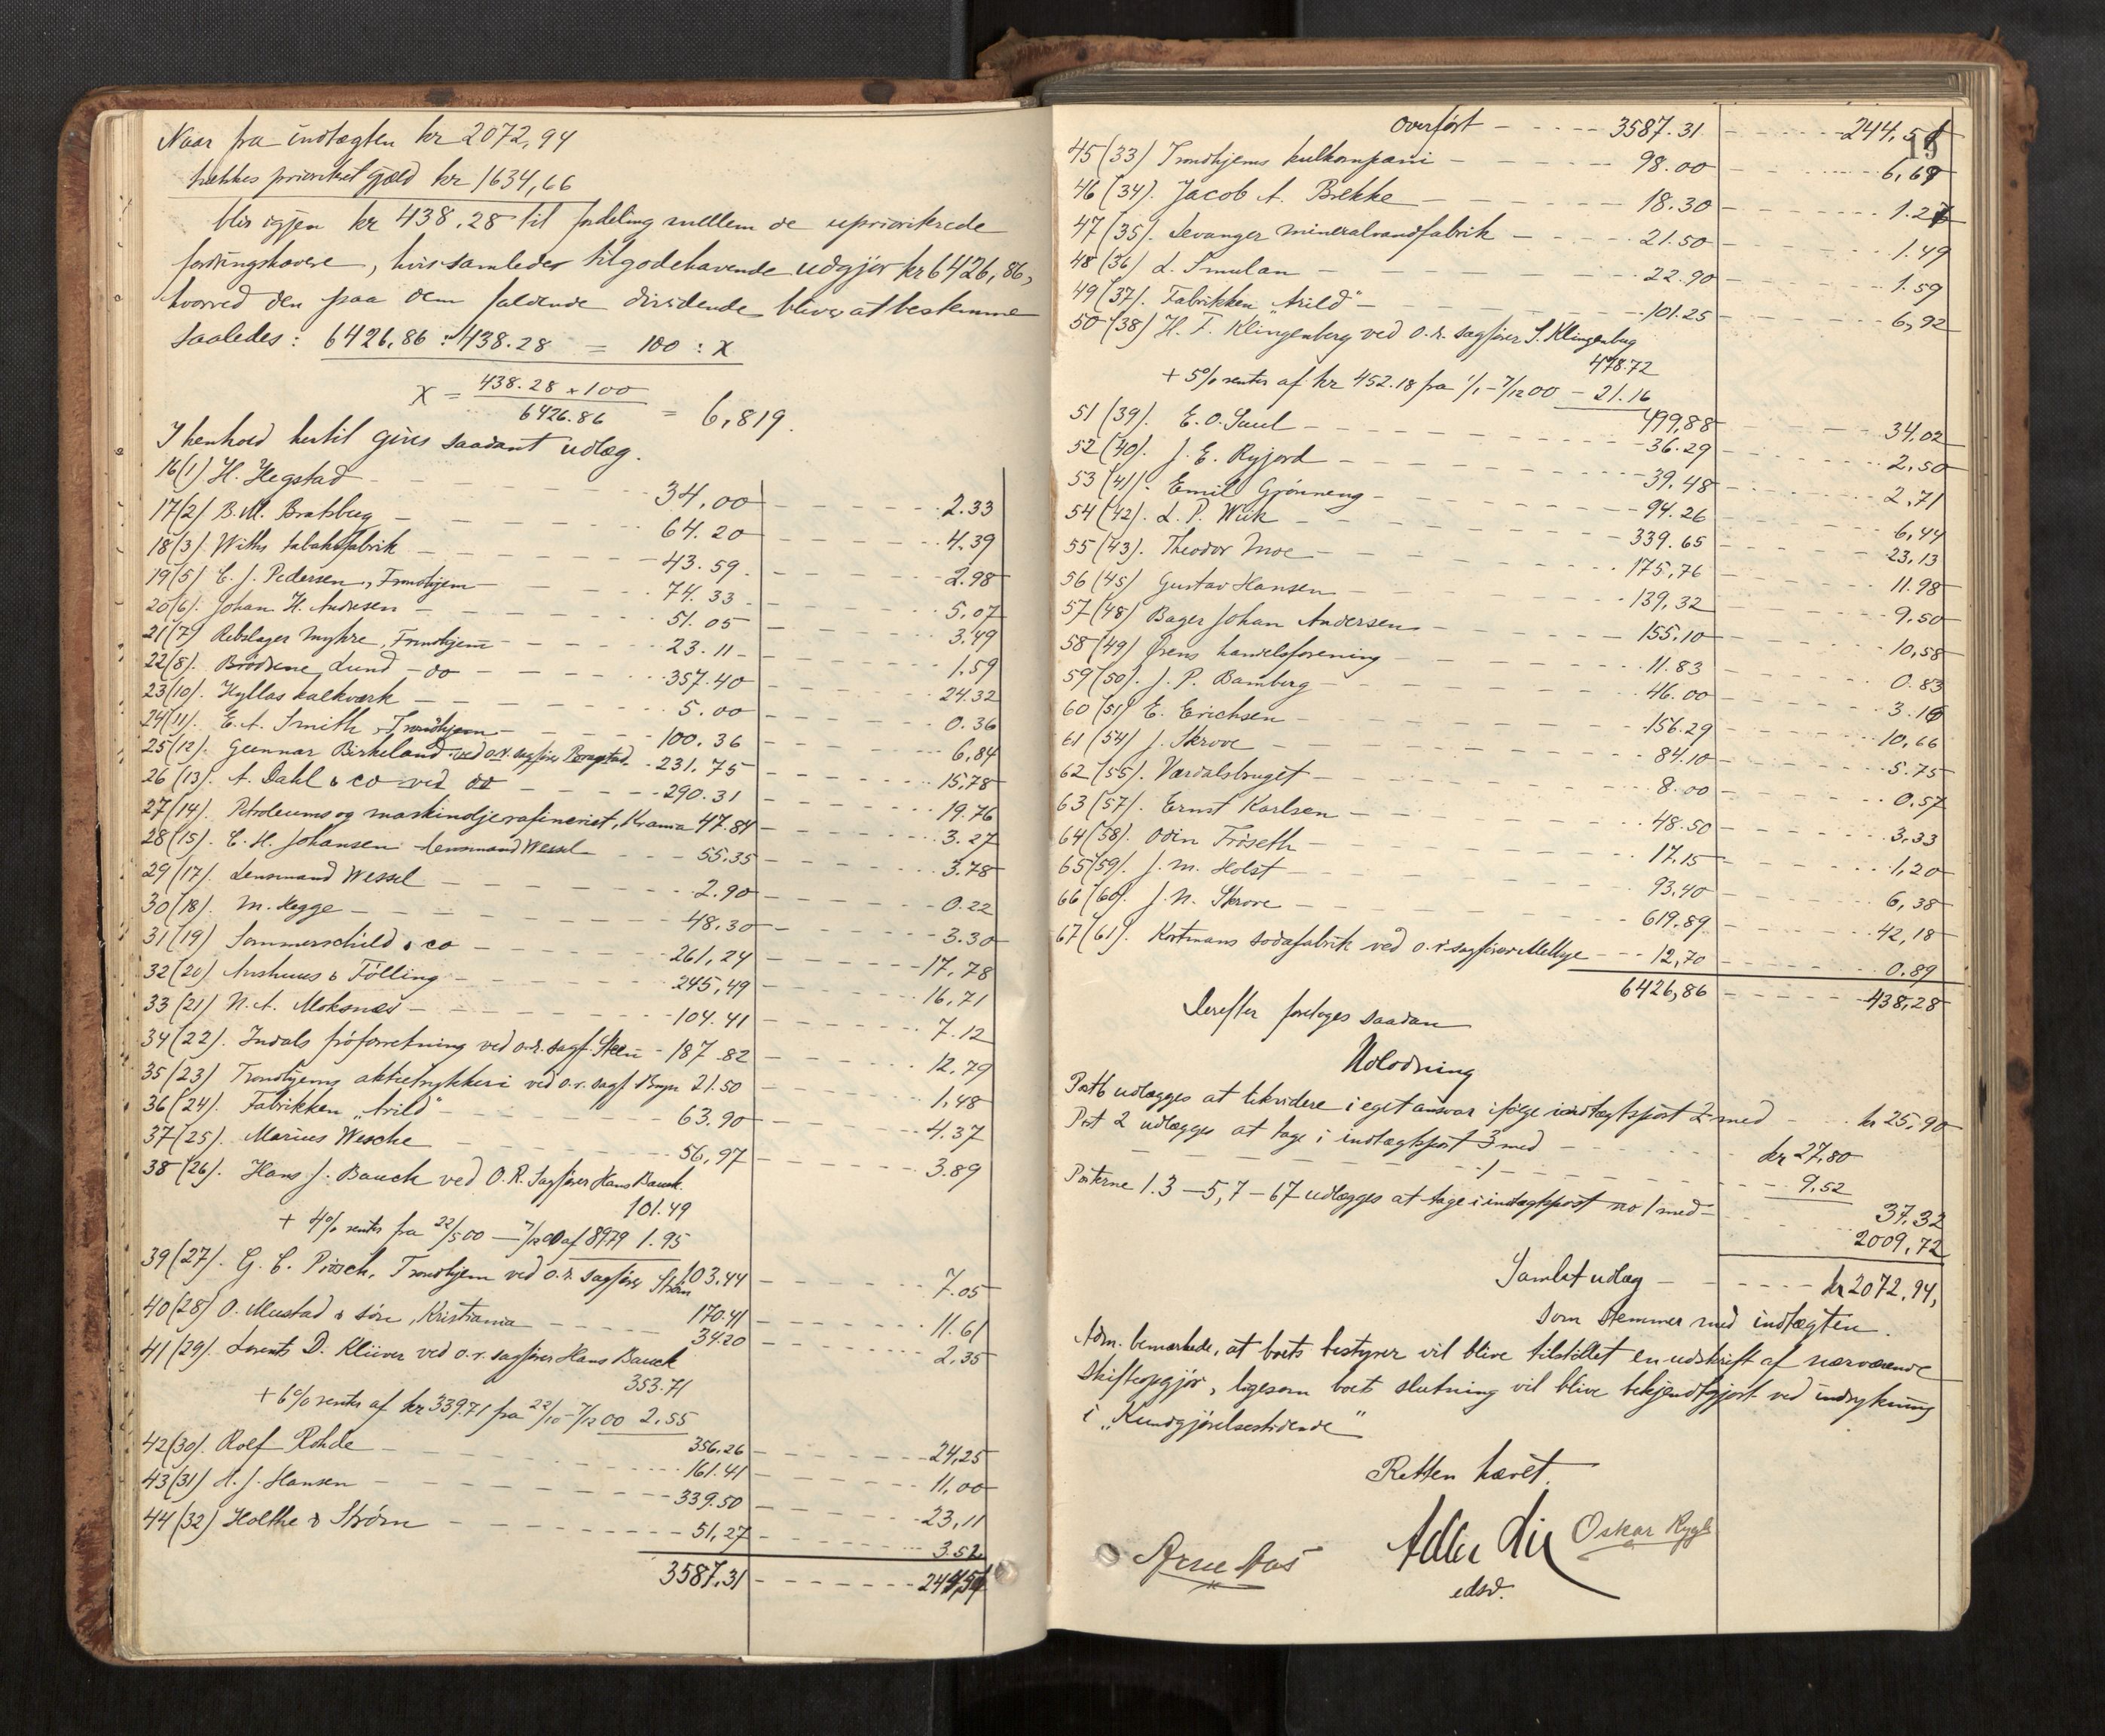 Naar fra indtægten kr 2072,94
trækkes prioritet gjæld kr 1634,66
blir igjen kr 438.28 til fordeling mellem de uprioriterede
fordringshavere, hvis samlede tilgodehavende udgjør kr 6426,86,
hvorved den paa dem faldende dividende bliver at bestemme
saaledes: 6426,86 : 438.28 = 100 : x
x = 438.28 x 100 / 6426.86 = 6,819.
I henhold hertil gives saadant udlæg.
16(1) H. Hegstad - 34,00 - 2.33
17(2) B.M. Bratsberg - 64.20 - 4.39
18(3) Withs tabaksfabrik - 43.59. - 2.98
19(5) E. J. Pedersen, Trondhjem - 74.33 - 5.07
20(6). Johan H. Andresen - 51.05 - 3.49
21(7) Rebslager Myhre, Trondhjem - 23.11 - 1.59
22(8). Brødrene Lund - do - 357.40 - 24.32
23(10). Hyllas kalkværk - 5.00 - 0.36
24(11). E. A. Smith, Trondhjem - 100.36 - 6,84
25(12). Gunnar Birkeland ved o.r. sagfører - 231.75 - 15,78
26(13). A. Dahl & co ved do - 290.31 - 19.76
27(14). Petroleums og maskinoljerafineriet, Krania 47.84 - 3.27
28(15). E. H. Johansen lensmand Wessel - 55.35 - 3.78
29(17). Lensmand Wessel - 2.90 - 0.22
30(18). M. Hegge - 48.30 - 3.30
31(19) Sommerschild & co - 261,24 - 17,78
32(20) Aushuus & Fölling - 245,49 - 16,71
33(21) N. A. Moksnæs - 104.41 - 7.12
34(22). Indals frøforretning ved o.r. sagf. Steen - 187.82 - 12,79
35(23) Trondhjems aktietrykkeri ved o.r. sagf. Bryn 21.50 - 1,48
36(24). Fabrikken „Arild" - 63.90 - 4.37
37(25). Marius Wesche - 56,97 - 3.89
38(26). Hans J. Bauck ved O.R. Sagfører Hans Bauck
101.49
+ 4% renter fra 22/5 00 - 7/12 00 af 89.79 1.95
103.44 - 7.05
39(27). G. C. Piösch, Trondhjem ved o.r. sagfører Strøm 170.41 - 11.61
40(28) O. Mustad & søn, Kristiania - 34.20 - 2.35
41(29). Lorents D. Klüwer ved o.r. sagfører Hans Bauck
353.71
+ 6% renter af kr 339.71 fra 22/10 - 7/12 00 2.55
356.26 - 24,25
42(30). Rolf Rohde - 161.41 - 11,00
43(31) A. J. Hansen - 339.50 - 23,11
44(32) Holthe & Strøm - 51,27 - 3.52
3587.31 - 244,51
Overført - 3587.31 - 244,51
13
45(33) Trondhjems kulkompani - 98.00 - 6,69
46(34). Jacob A. Brekke - 18.30 - 1.27
47(35). Levanger mineralvandfabrik - 21.50 - 1.49
48(36) L. Smulan - 22.90 - 1.59
49(37). Fabrikken „Arild" - 101.25 - 6,92
50(38) H. F. Klingenberg ved o.r. sagfører S. Klingenberg
478.72
+ 5% renter af kr 452.18 fra 1/1 - 7/12 00 - 21.16
499,88 - 34,02
51(39). E. O. Saul - 36.29 - 2,50
52(40). J. E. Ryjord - 39.48 - 2,71
53(41). Emil Grönneng - 94.26 - 6,44
54(42). L. P. Wiik - 339.65 - 23,13
55(43). Theodor Moe - 175,76 - 11.98
56(45) Gustav Hansen - 139,32 - 9,50
57(48) Bager Johan Andersen - 155.10 - 10,58
58(49) Ørens handelsforening - 11.83 - 0.83
59(50). J. P. Bamberg - 46.00 - 3.16
60(51) E. Erichsen - 156.29 - 10,66
61(54) J. Skrove - 84.10 - 5.75
62(55). Værdalsbruget - 8.00 - 0,57
63(57). Ernst Karlsen - 48.50 - 3,33
64(58). Odin Fröseth - 17.15 - 1,20
65(59). J. M. Holst - 93.40 - 6,38
66(60). J. N. Skrove - 619.89 - 42,18
67(61). Kortmans sodafabrik ved o.r. sagfører Mellbye - 12,70 - 0.89
6426,86 - 438,28
Derefter foretoges saadan
Udlodning
Post 6 udlægges at likvidere i eget ansvar ifølge indtægtspost 2 med - kr 25,90
Post 2 udlægges at tage i indtægtspost 3 med - kr 27,80
- 1 - 9,52
37,32
Posterne 1. 3 - 5, 7 - 67 udlægges at tage i indtægtspost no 1 med - 2009,72
Samlet udlæg - kr 2072.94,
som stemmer med indtægten.
Adm. bemærkede, at boets bestyrer vil blive tilstillet en udskrift af nærværende
skifteopgjør, ligesom boets slutning vil blive bekjendtgjort ved indrykning
i „Kundgjørelsestidende"
Retten hævet.
Arne Aas Adler Lie Oskar Rygh
edsv.